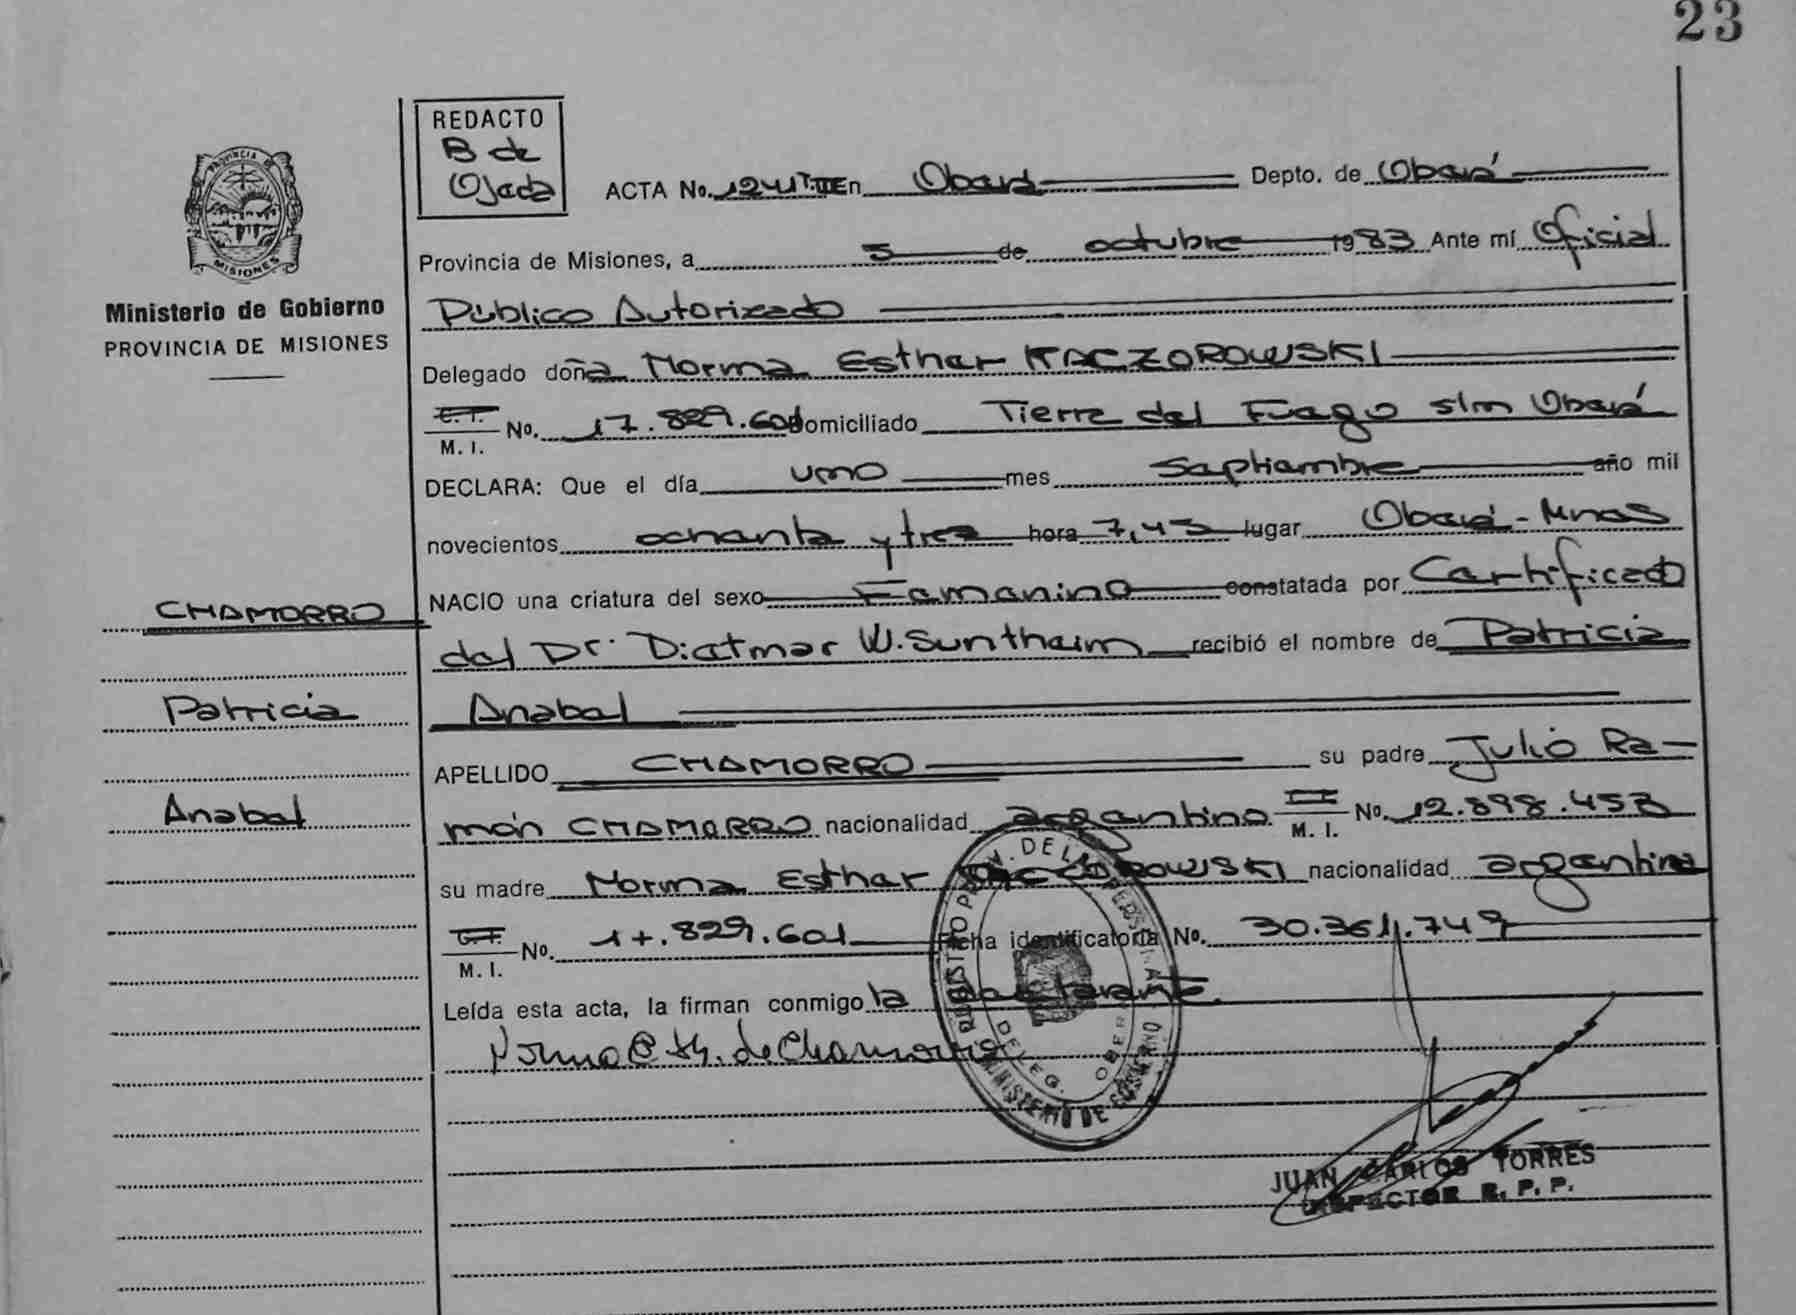 23
REDACTO
B de
Ojeda
ACTA No. 1241 T.III En Oberá Depto. de Oberá
Provincia de Misiones, a 5 de octubre 1983 Ante mí Oficial
Público Autorizado
PROVINCIA DE
MISIONES
Ministerio de Gobierno
PROVINCIA DE MISIONES
Delegado doña Norma Esther KACZOROWSKI
C.I.
M. I. No. 17.829.601 domiciliado Tierra del Fuego s/n Oberá
DECLARA: Que el día uno mes Septiembre año mil
novecientos ochenta y tres hora 7,43 lugar Oberá - Mnes
NACIO una criatura del sexo Femenino constatada por Certificado
del Dr. Dietmar W. Suntheim recibió el nombre de Patricia
Anabel
APELLIDO CHAMORRO su padre Julio Ra-
món CHAMORRO nacionalidad argentino M. I. No. 12.898.453
su madre Norma Esther KACZOROWSKI nacionalidad argentina
C.I.
M. I. No. 17.829.601 Ficha identificatoria No. 30.361.749
Leída esta acta, la firman conmigo la declarante.
CHAMORRO
Patricia
Anabel
Norma E. K. de Chamorro
REGISTRO PROV. DE LAS PERSONAS
DELEG. OBERA
MINISTERIO DE GOBIERNO
JUAN CARLOS TORRES
INSPECTOR R. P. P.